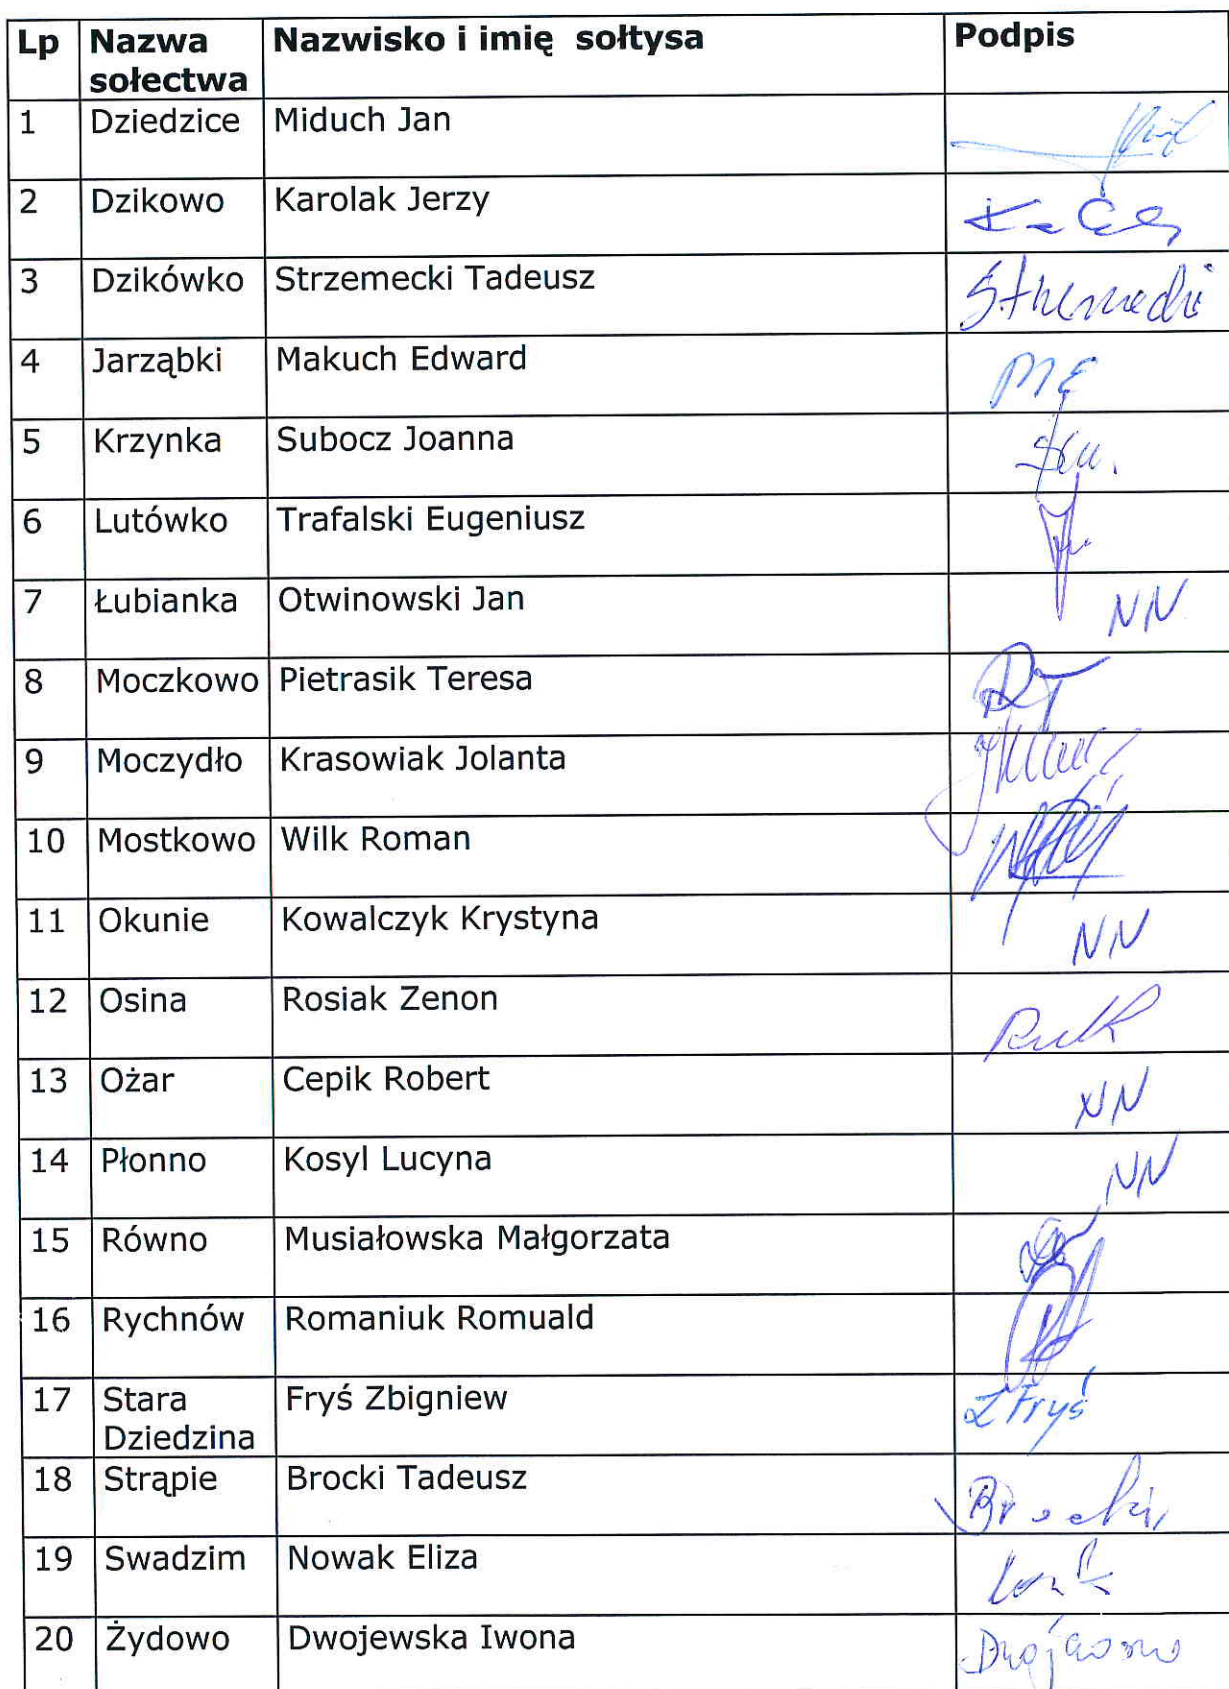 Lp Nazwa sołectwa Nazwisko i imię sołtysa Podpis
1 Dziedzice Miduch Jan
2 Dzikowo Karolak Jerzy
3 Dzikówko Strzemecki Tadeusz
4 Jarząbki Makuch Edward ME
5 Krzynka Subocz Joanna
6 Lutówko Trafalski Eugeniusz
7 Łubianka Otwinowski Jan NN
8 Moczkowo Pietrasik Teresa
9 Moczydło Krasowiak Jolanta
10 Mostkowo Wilk Roman
11 Okunie Kowalczyk Krystyna NN
12 Osina Rosiak Zenon
13 Ożar Cepik Robert NN
14 Płonno Kosyl Lucyna NN
15 Równo Musiałowska Małgorzata
16 Rychnów Romaniuk Romuald
17 Stara Dziedzina Fryś Zbigniew Z Fryś
18 Strąpie Brocki Tadeusz Brocki
19 Swadzim Nowak Eliza
20 Żydowo Dwojewska Iwona